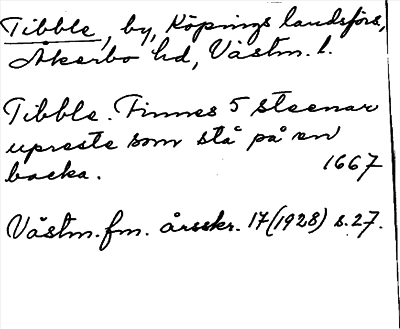 Tibble, by, Köpings landsförs,
Åkerbo hd, Västm. l.
Tibble. Finnes 5 steenar
upreste som stå på en
backa.
1667
Västm. fm. årsskr. 17(1928) s. 27.